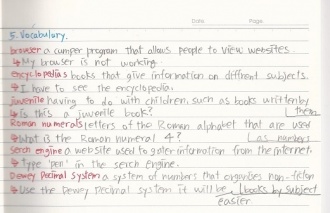 Date Page
5. Vocabulary.
browser a cumper program that allows people to view websites
↳ My browser is not working.
encyclopedias books that give information on diffrent subjects.
↳ I have to see the encyclopedia.
juvenile having to do with children, such as books written by
↳ Is this a juvenile book? them
Roman numerals letters of the Roman alphabet that are used
↳ What is the Roman numeral 4? as number
Serch engine a website used to gater information from the internet.
↳ Type 'pen' in the serch engine.
Dewey Decimal System a system of numbers that organises non-fiction
↳ Use the Dewey Decimal system it will be books by subject
easier